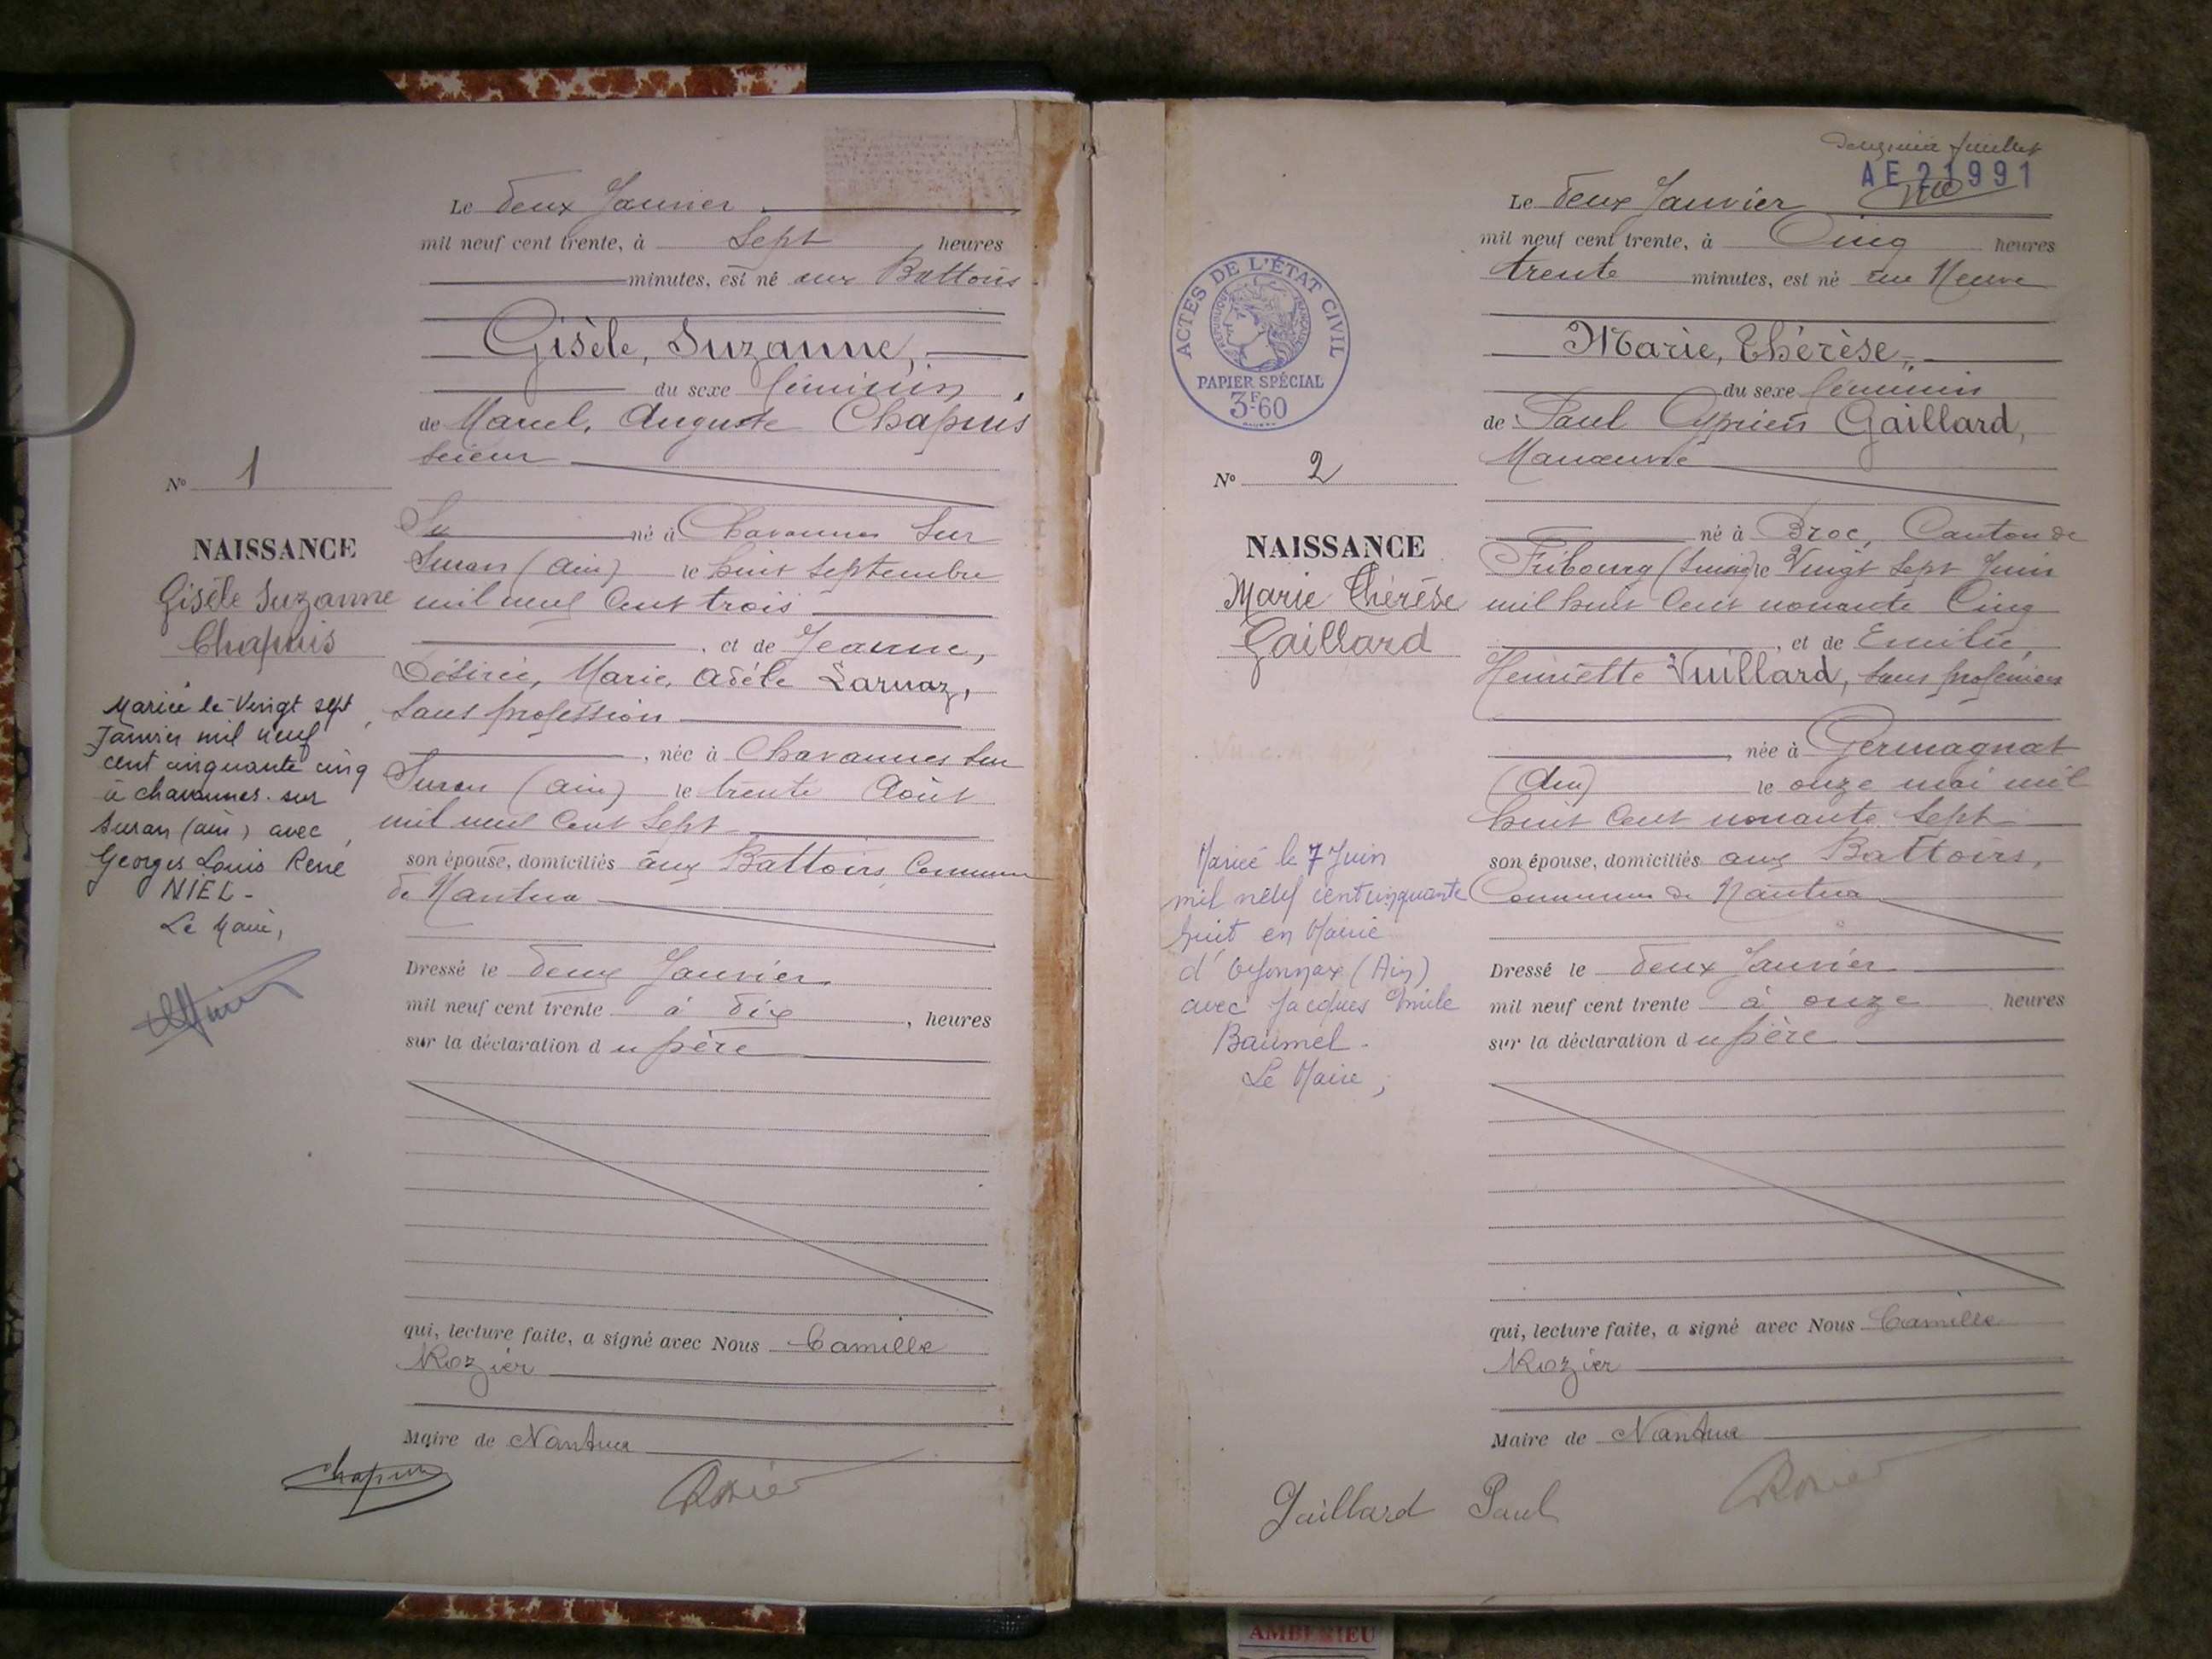 Le deux Janvier
mil neuf cent trente, à Sept heures
minutes, est né aux Battoirs
Gisèle, Suzanne,
du sexe féminin
de Marcel, Auguste Chapuis
Scieur
né à Chavannes Sur
Suran (Ain) le huit Septembre
mil neuf Cent trois
, et de Jeanne,
Désirée, Marie, Adèle Larnaz,
Sans profession
, née à Chavannes Sur
Suran (Ain) le trente Août
mil neuf Cent Sept
son épouse, domiciliés aux Battoirs, Commune
de Nantua
Dressé le deux Janvier
mil neuf cent trente à dix , heures
sur la déclaration du père
qui, lecture faite, a signé avec Nous Camille
Rozier
Maire de Nantua
Chapuis
Rozier
No 1
NAISSANCE
Gisèle Suzanne
Chapuis
Mariée le Vingt sept
Janvier mil neuf
cent cinquante cinq
à chavannes sur
suran (ain) avec
Georges Louis René
NIEL-
Le Maire,
feuillet
AE 21991
Le deux Janvier
mil neuf cent trente, à Cinq heures
trente minutes, est né rue Neuve
Marie, Thérèse,
du sexe féminin
de Paul Cyprien Gaillard,
Manœuvre
né à Broc, Canton de
Fribourg (Suisse) le Vingt Sept Juin
mil huit Cent nonante Cinq
, et de Emilie,
Henriette Vuillard, Sans profession
, née à Germagnat
(Ain) le onze mai mil
huit Cent nonante Sept
son épouse, domiciliés aux Battoirs,
Commune de Nantua
Dressé le deux Janvier
mil neuf cent trente à onze heures
sur la déclaration du père
qui, lecture faite, a signé avec Nous Camille
Rozier
Maire de Nantua
Gaillard Paul
Rozier
ACTES DE L'ÉTAT CIVIL
RÉPUBLIQUE FRANÇAISE
PAPIER SPÉCIAL
3F60
No 2
NAISSANCE
Marie Thérèse
Gaillard
Mariée le 7 Juin
mil neuf cent cinquante
huit en Mairie
d'Oyonnax (Ain)
avec Jacques Emile
Baumel -
Le Maire,
AMBERIEU